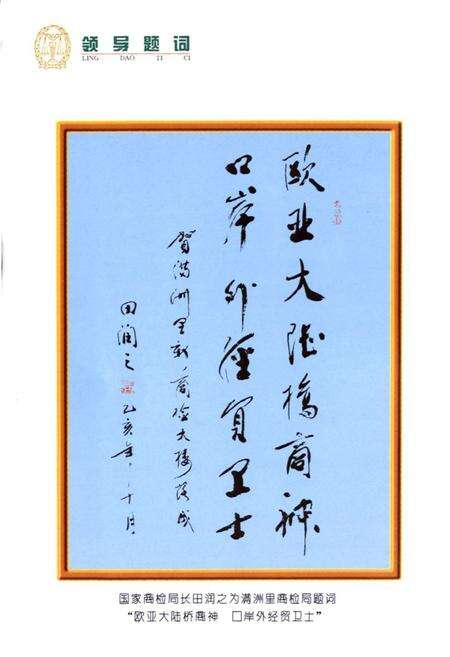 领导题词
LING DAO TI CI
欧亚大陆橋商神
口岸外經貿卫士
贺满洲里新商检大楼落成
田润之
乙亥年十月
国家商检局长田润之为满洲里商检局题词
“欧亚大陆桥商神 口岸外经贸卫士”